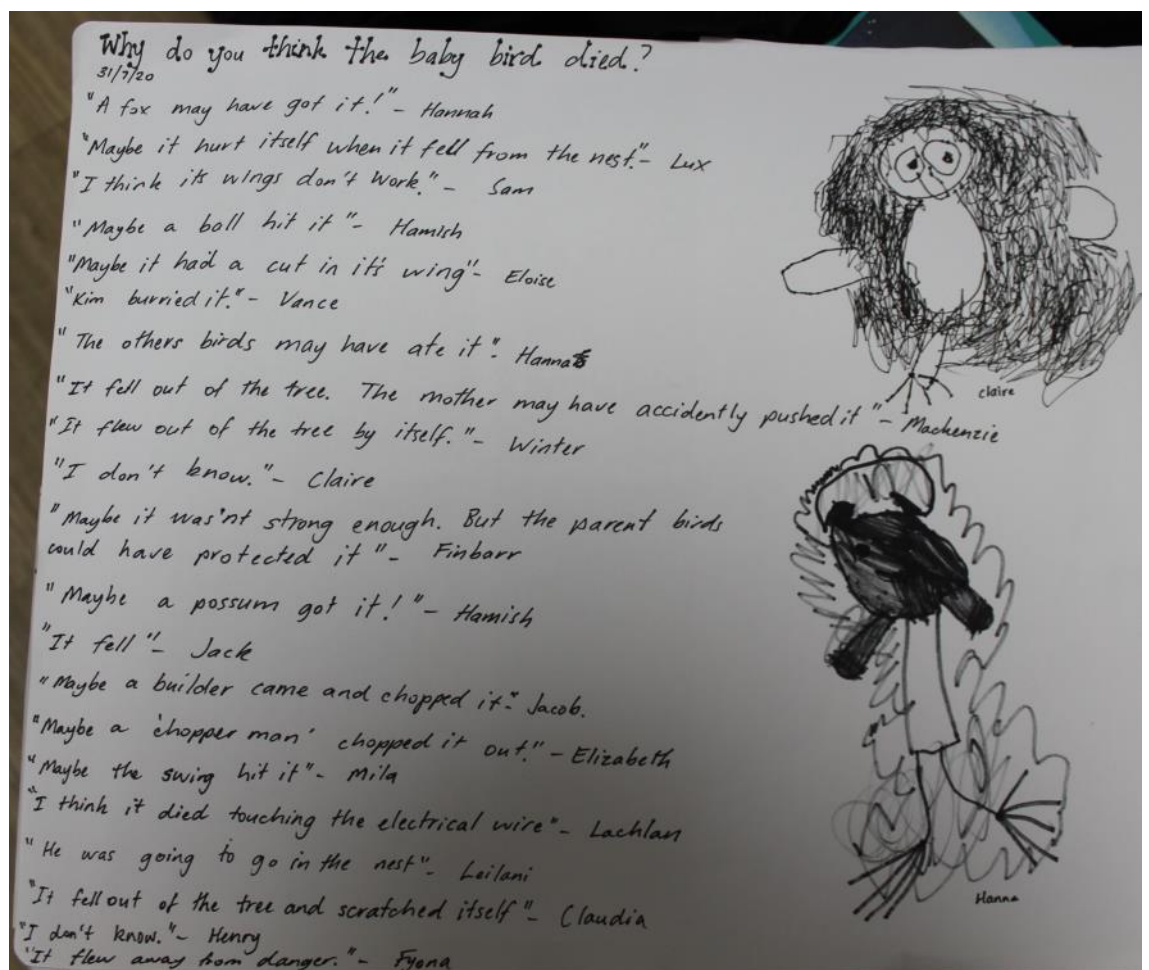 Why do you think the baby bird died?
31/7/20
"A fox may have got it!" - Hannah
"Maybe it hurt itself when it fell from the nest." - Lux
"I think its wings don't work." - Sam
"Maybe a ball hit it" - Hamish
"Maybe it had a cut in it's wing" - Eloise
"Kim burried it." - Vance
"The others birds may have ate it". Hanna
"It fell out of the tree. The mother may have accidently pushed it" - Mackenzie
"It flew out of the tree by itself." - Winter
"I don't know." - Claire
"Maybe it was'nt strong enough. But the parent birds
could have protected it" - Finbarr
"Maybe a possum got it!" - Hamish
"It fell" - Jack
"Maybe a builder came and chopped it". Jacob.
"Maybe a 'chopper man' chopped it out." - Elizabeth
"Maybe the swing hit it" - Mila
"I think it died touching the electrical wire" - Lachlan
"He was going to go in the nest" - Leilani
"It fell out of the tree and scratched itself" - Claudia
"I don't know." - Henry
"It flew away from danger." - Fyona
claire
Hanna